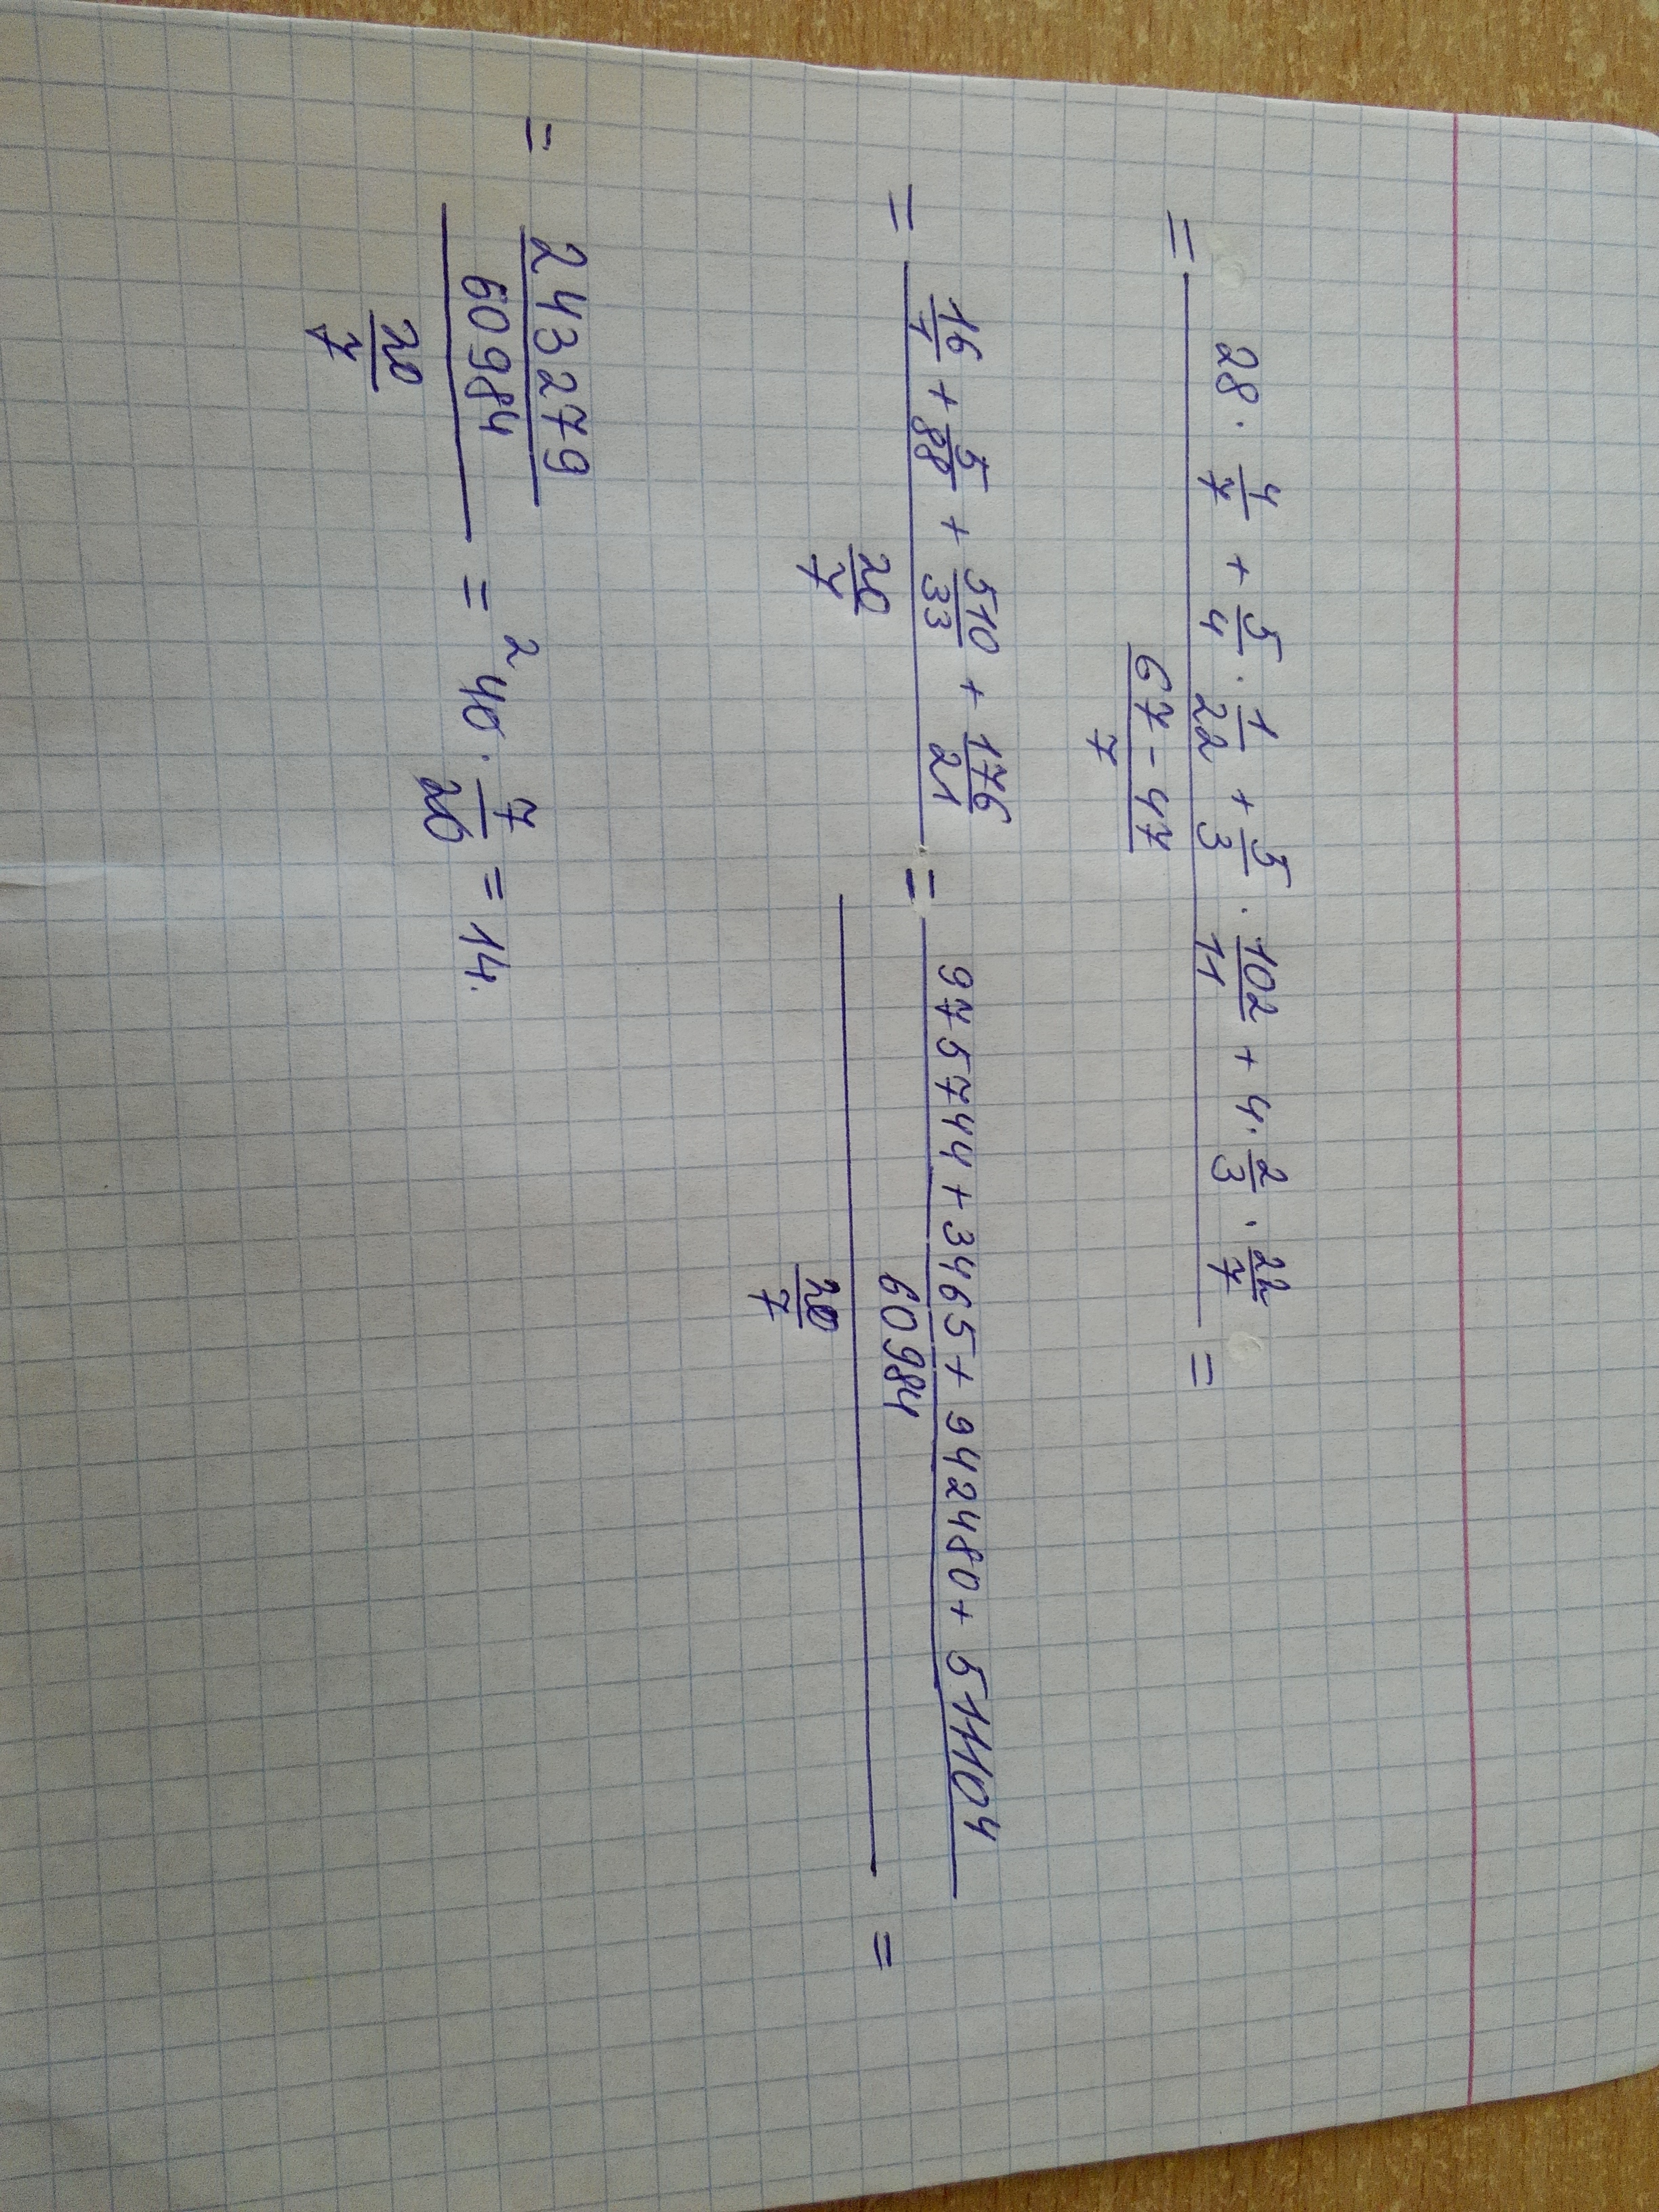 = (28 · 4/7 + 5/4 · 1/22 + 5/3 · 102/11 + 4 · 2/3 · 22/7) / ((67 - 47)/7) =
= (16/1 + 5/88 + 510/33 + 176/21) / (20/7) = ((975744 + 3465 + 942480 + 511104)/60984) / (20/7) =
= (243279/60984) / (20/7) = ²40 · 7/20 = 14.